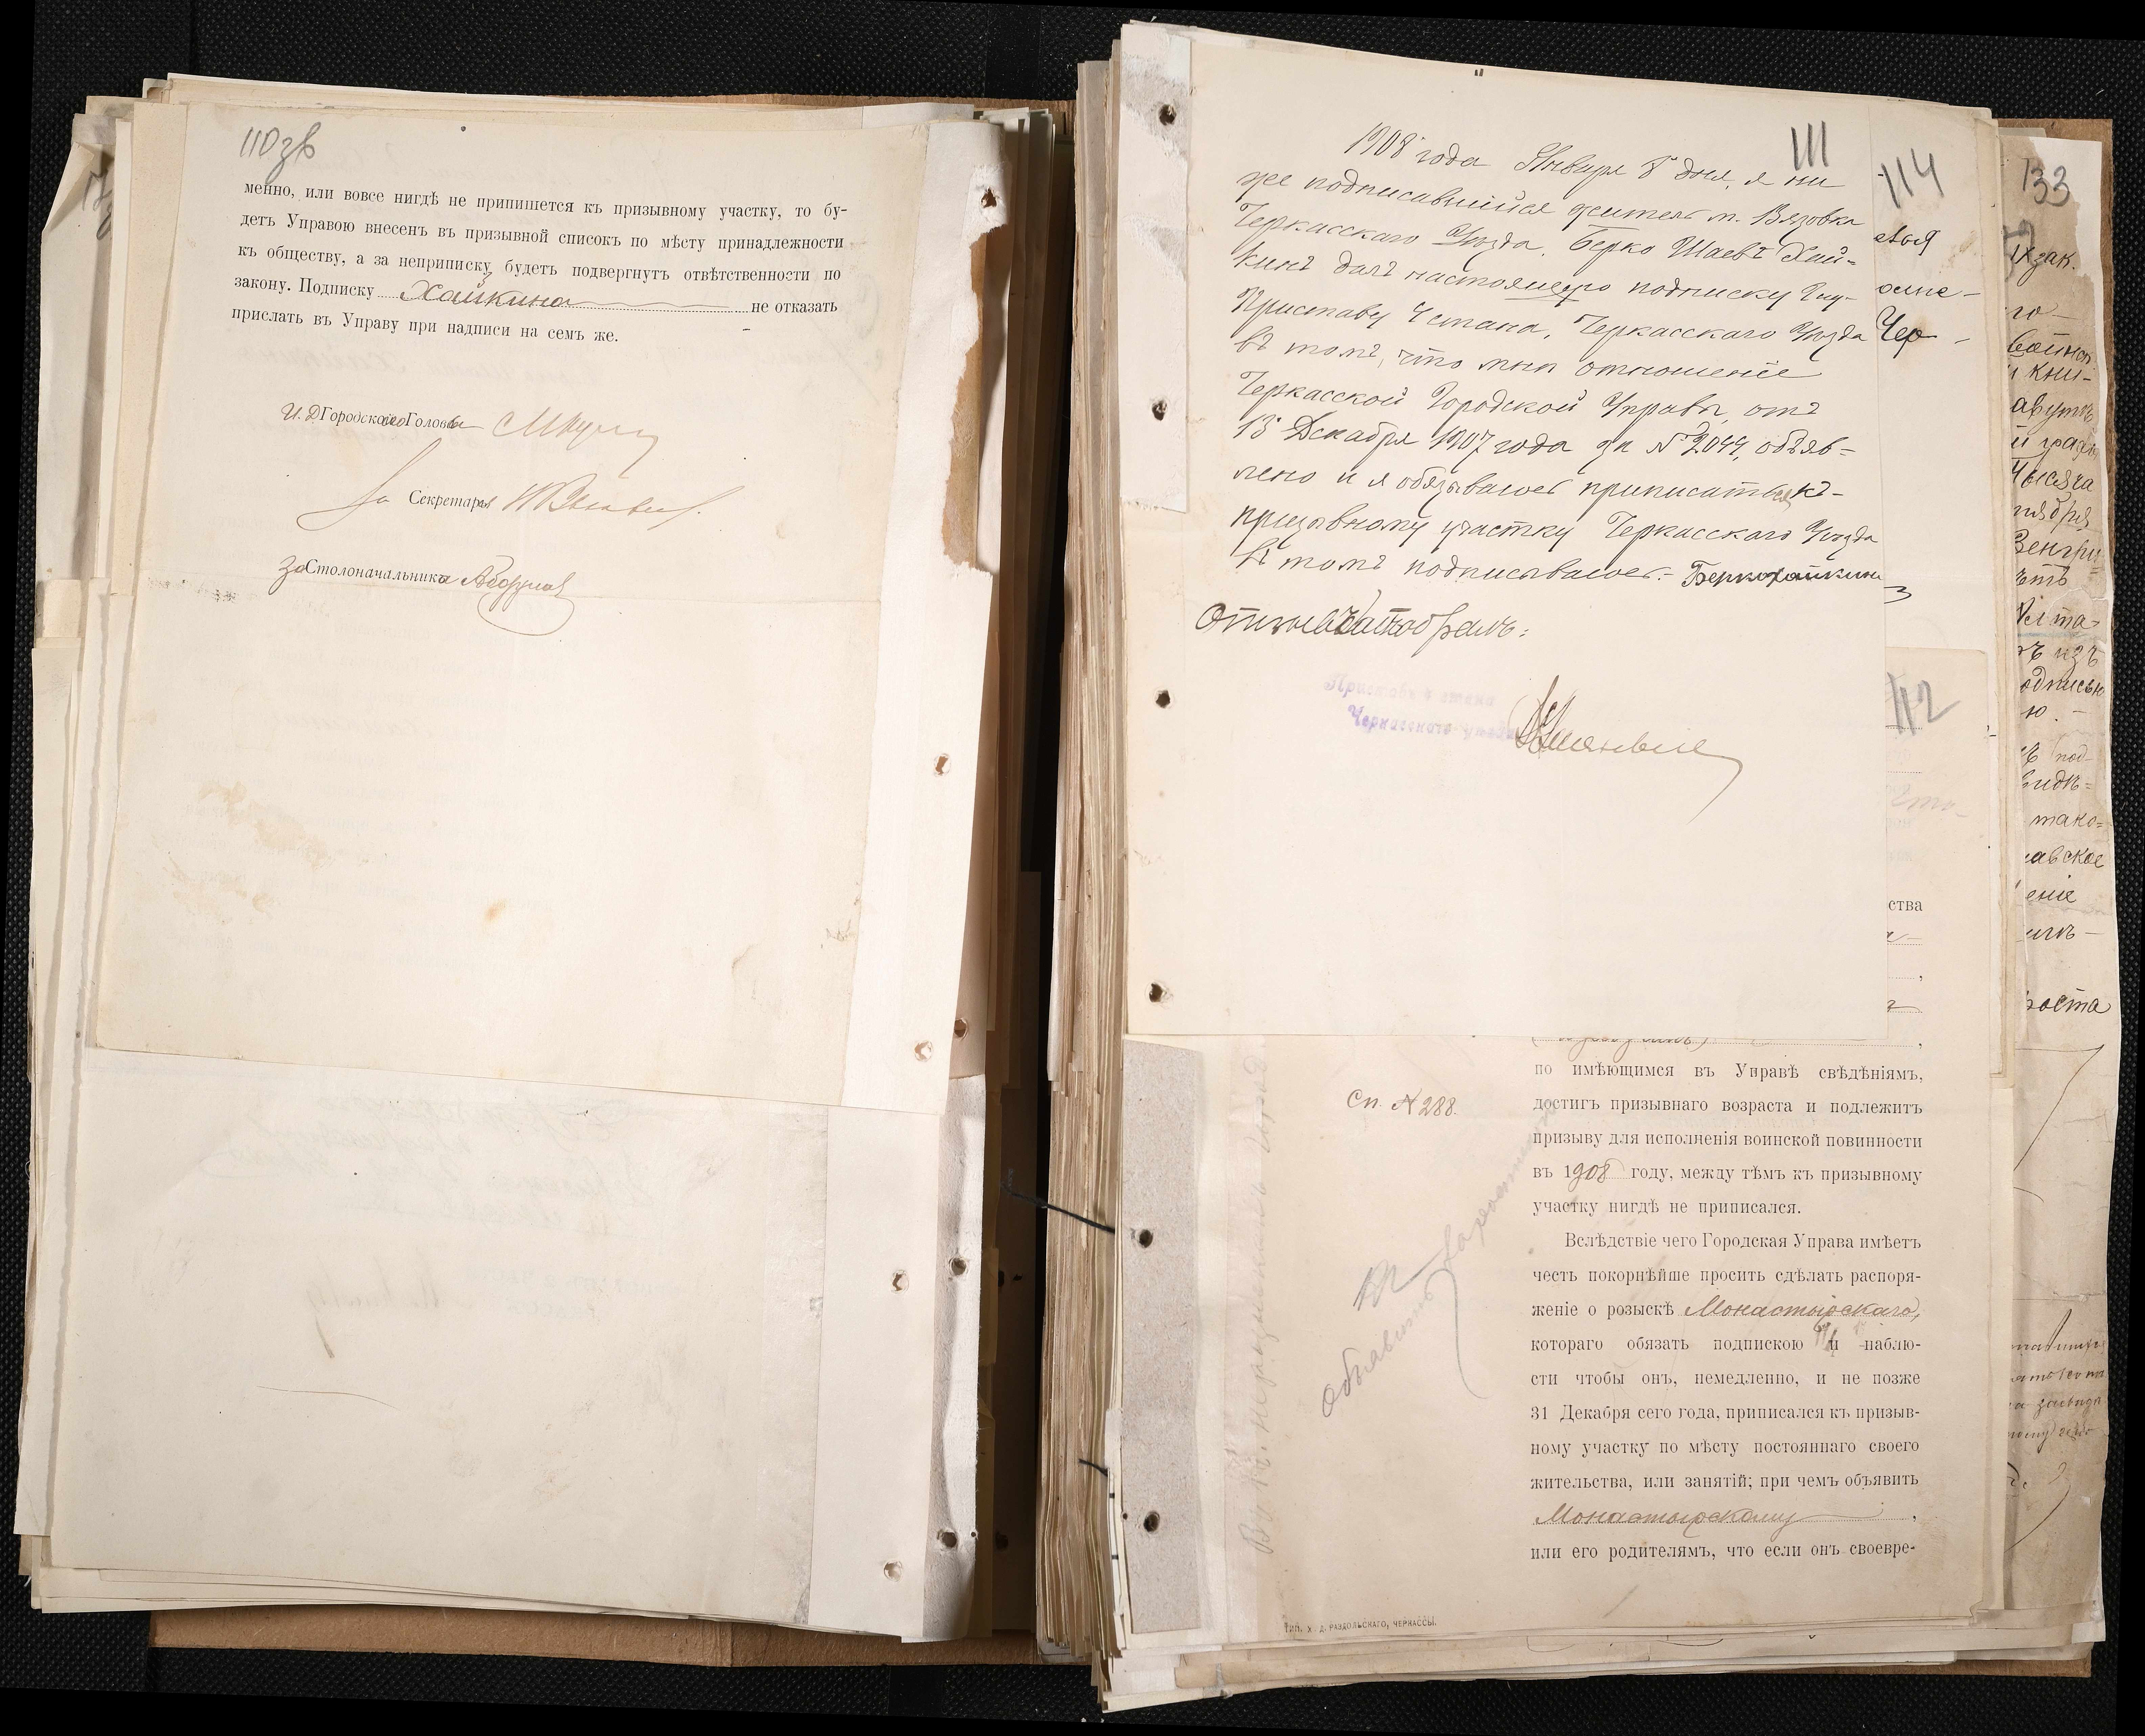 110 зв
менно, или вовсе нигдѣ не припишется къ призывному участку, то бу-
детъ Управою внесенъ въ призывной списокъ по мѣсту принадлежности
къ обществу, а за неприписку будетъ подвергнутъ отвѣтственности по
закону. Подписку Хайкина не отказать
прислать въ Управу при надписи на семъ же.
И. Д. Городского Головы
За Секретаря
За Столоначальника
111
1908 года Января 8 дня, я ни
же подписавшійся житель м. Вязовка
Черкасскаго Уѣзда, Берко Шаевъ Хай-
кинъ далъ настоящую подписку Гну
Приставу 4 стана, Черкасскаго Уѣзда
въ томъ, что мнѣ отношеніе
Черкасской Городской Управы отъ
13 Декабря 1907 года за № 2044, объяв-
лено и я обязываюсь приписаться къ-
призывному участку Черкасскаго Уѣзда
въ томъ подписываюсь:- Берко Хайкинъ
отобралъ:
Приставъ 4 стана
Черкасскаго уѣзда
114
Чер-
112
ства
Сп. № 288.
по имѣющимся въ Управѣ свѣдѣніямъ,
достигъ призывнаго возраста и подлежитъ
призыву для исполненія воинской повинности
въ 1908 году, между тѣмъ къ призывному
участку нигдѣ не приписался.
Вслѣдствіе чего Городская Управа имѣетъ
честь покорнѣйше просить сдѣлать распоря-
женіе о розыскѣ Монастырскаго,
котораго обязать подпискою и наблю-
сти чтобы онъ, немедленно, и не позже
31 Декабря сего года, приписался къ призыв-
ному участку по мѣсту постояннаго своего
жительства, или занятій; при чемъ объявить
Монастырскому,
или его родителямъ, что если онъ своевре-
Объявить
ТИП. Х. Д. РАЗДОЛЬСКАГО, ЧЕРКАССЫ.
133